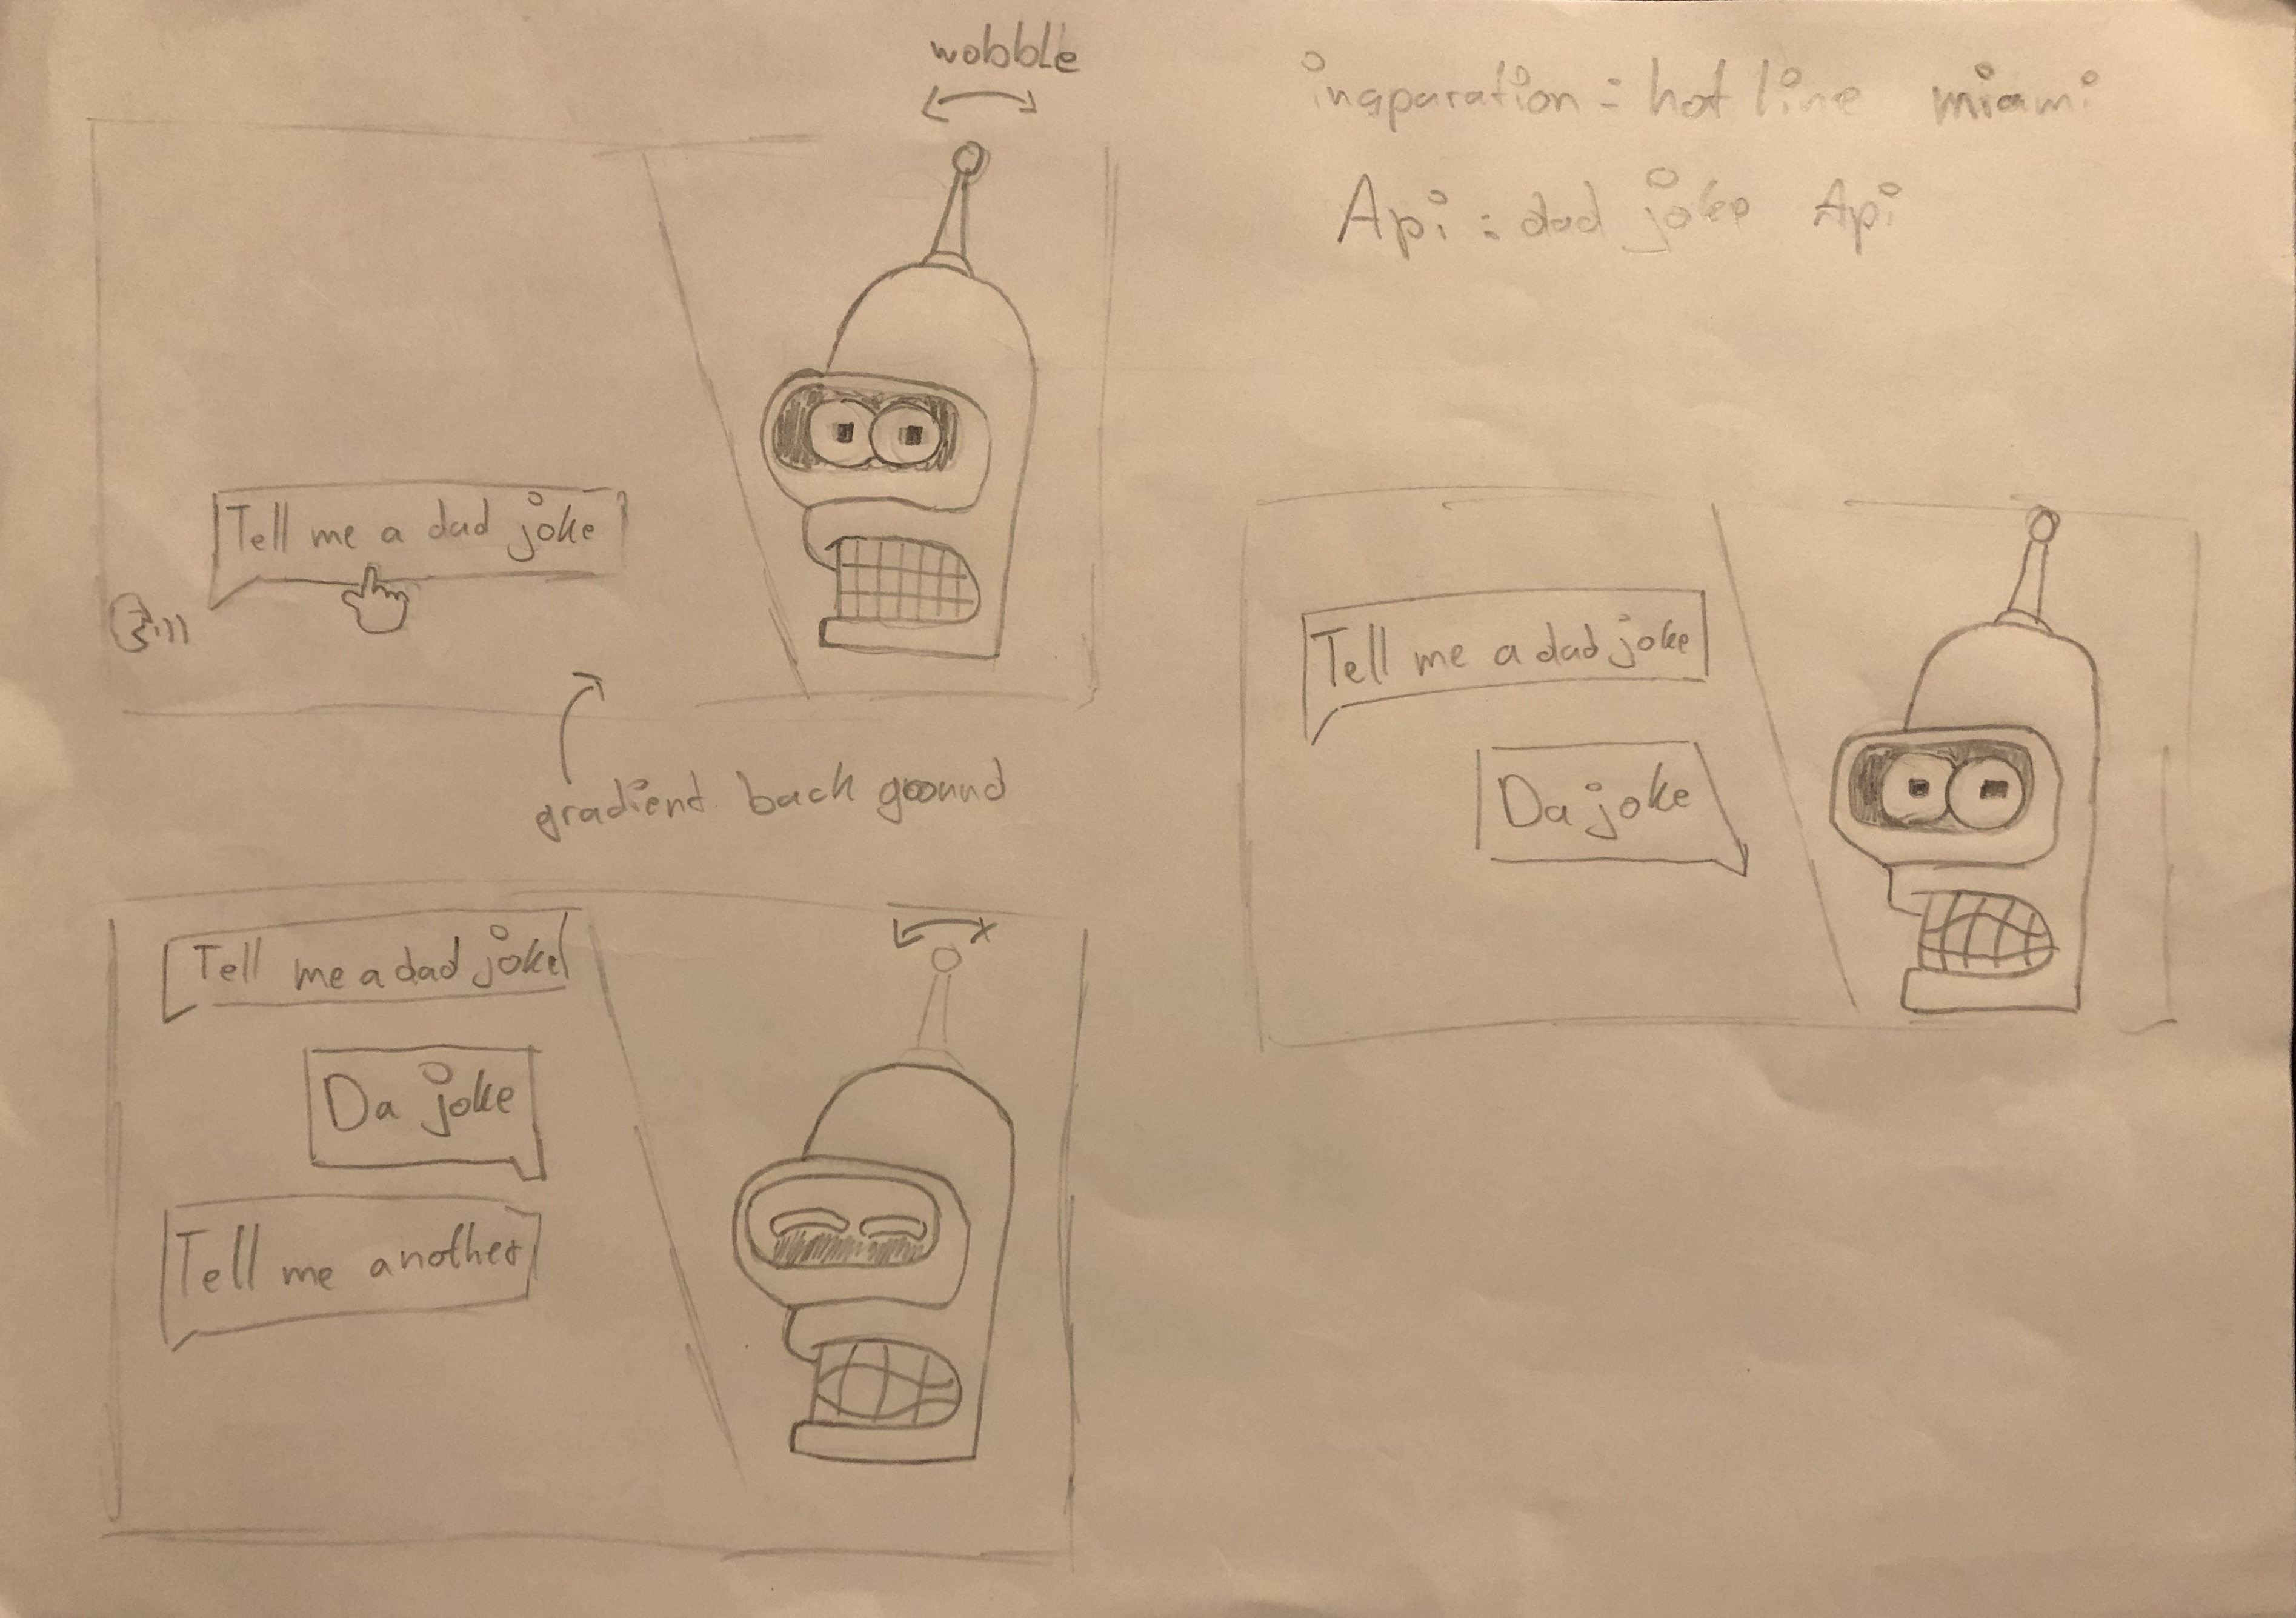 wobble
insparation = hot line miami
Api = dad joke Api
Tell me a dad joke
gradient back goound
Tell me a dad joke
Da joke
Tell me a dad joke
Da joke
Tell me another